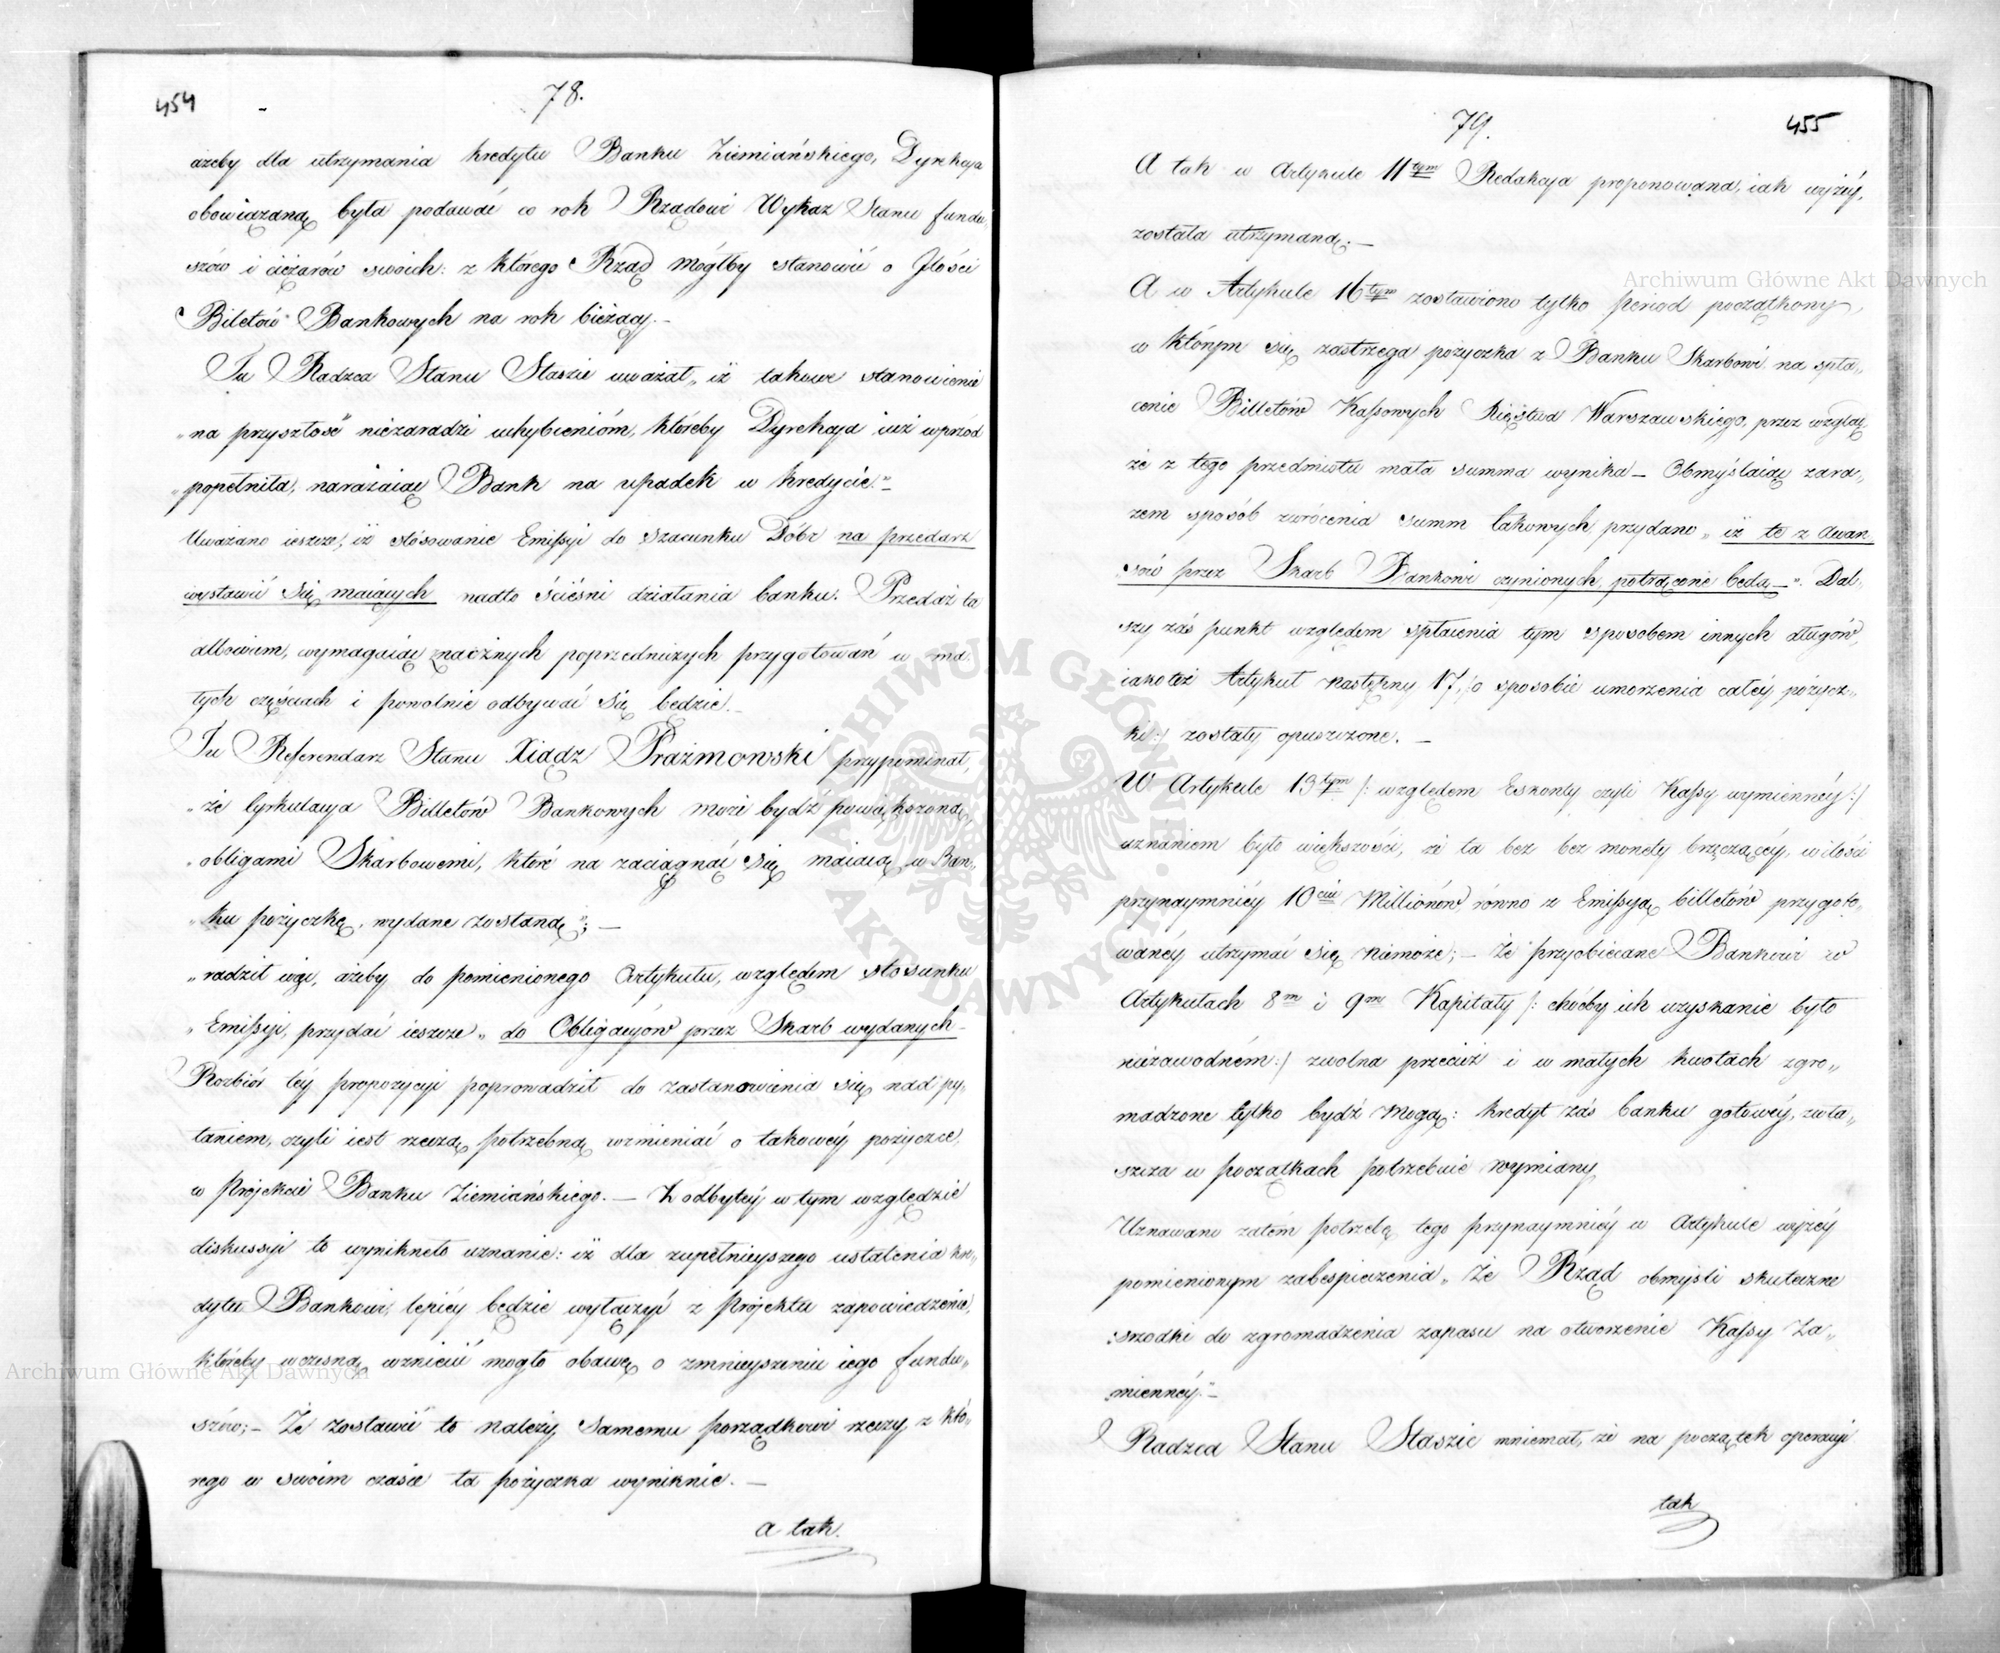 454
78.
ażeby dla utrzymania kredytu Banku Ziemiańskiego, Dyrekcya
obowiązaną była podawać co rok Rządowi Wykaz Stanu fundu-
szów i ciężarów swoich: z którego Rząd mógłby stanowić o Jlości
Biletów Bankowych na rok bieżący.—
Tu Radzca Stanu Staszic uważał „iż takowe stanowienie
„na przyszłość niezaradzi uchybieniom, któreby Dyrekcya już wprzód
„popełniła, narażaiąc Bank na upadek w kredycie."—
Uważano ieszcze, iż stósowanie Emissyi do szacunku Dóbr na przedarz
wystawić się maiących nadto ścieśni działania banku. Przedaż ta
albowiem, wymagaiąc znacznych poprzedniczych przygotowań w ma-
łych częściach i powolnie odbywać się będzie.—
Tu Referendarz Stanu Xiądz Prażmowski przypominał,
„że cyrkulacya Billetów Bankowych może bydź powiększoną,
„obligami Skarbowemi, które na zaciągnąć się maiącą w Ban-
„ku pożyczkę, wydane zostaną"; —
„radził więc, ażeby do pomienionego Artykułu, względem stosunku
„Emissyi, przydać ieszcze „do Obligacyów przez Skarb wydanych—
Rozbiór téy propozycyi poprowadził do zastanowienia się nad py-
taniem, czyli iest rzeczą potrzebną wzmieniać o takowéy pożyczce,
w Projekcie Banku Ziemiańskiego.— Z odbytéy w tym względzie
diskussyi to wynikneło uznanie: iż dla zupełnieyszego ustalenia kre-
dytu Bankowi, lepiéy będzie wyłączyć z Projektu zapowiedzenie,
któreby wczesną wzniecić mogło obawę o zmnieyszeniu iego fundu-
szów;— Że zostawić to należy samemu porządkowi rzeczy z któ-
rego w swoim czasie ta pożyczka wyniknie.—
a tak.
79.
455
A tak w Artykule 11tym Redakcya proponowana, iak wyżéy,
została utrzymaną.—
A w Artykule 16tym zostawiono tylko period początkowy,
w którym się zastrzega pożyczka z Banku Skarbowi na spła-
cenie Billetów Kassowych Xięstwa Warszawskiego, przez wzgląd,
że z tego przedmiotu mała summa wynika— Obmyślaiąc zara-
zem sposób zwrócenia summ takowych, przydano „iż te z awan
„sów przez Skarb Bankowi czynionych, potrącone będą—". Dal-
szy zaś punkt względem spłacenia tym sposobem innych długów,
iakoteż Artykuł następny 17. /:o sposobie umorzenia całéy pożycz-
ki:/ zostały opuszczone.—
W Artykule 13tym /: względem Eskonty czyli Kassy wymiennéy:/
uznaniem było większości, że ta bez bez monety brzęczącéy, w ilości
przynaymniéy 10ciu Millionów, równo z Emissyą billetów przygoto-
wanéy utrzymać się niemoże;— Że przyobiecane Bankowi w
Artykułach 8m i 9m Kapitały /: choćby ich uzyskanie było
niezawodném:/ zwolna przecież i w małych kwotach zgro-
madzone tylko bydź mogą: kredyt zaś banku gotowéy, zwła-
szcza w początkach potrzebuie wymiany
Uznawano zatém potrzebę tego przynaymniéy w Artykule wyżéy
pomienionym zabespieczenia „Że Rząd obmyśli skuteczne
„szrodki do zgromadzenia zapasu na otworzenie Kassy Za-
„miennéy."—
Radzca Stanu Staszic mniemał, że na początek operacyi
tak
Archiwum Główne Akt Dawnych
Archiwum Główne Akt Dawnych
ARCHIWUM GŁÓWNE AKT DAWNYCH